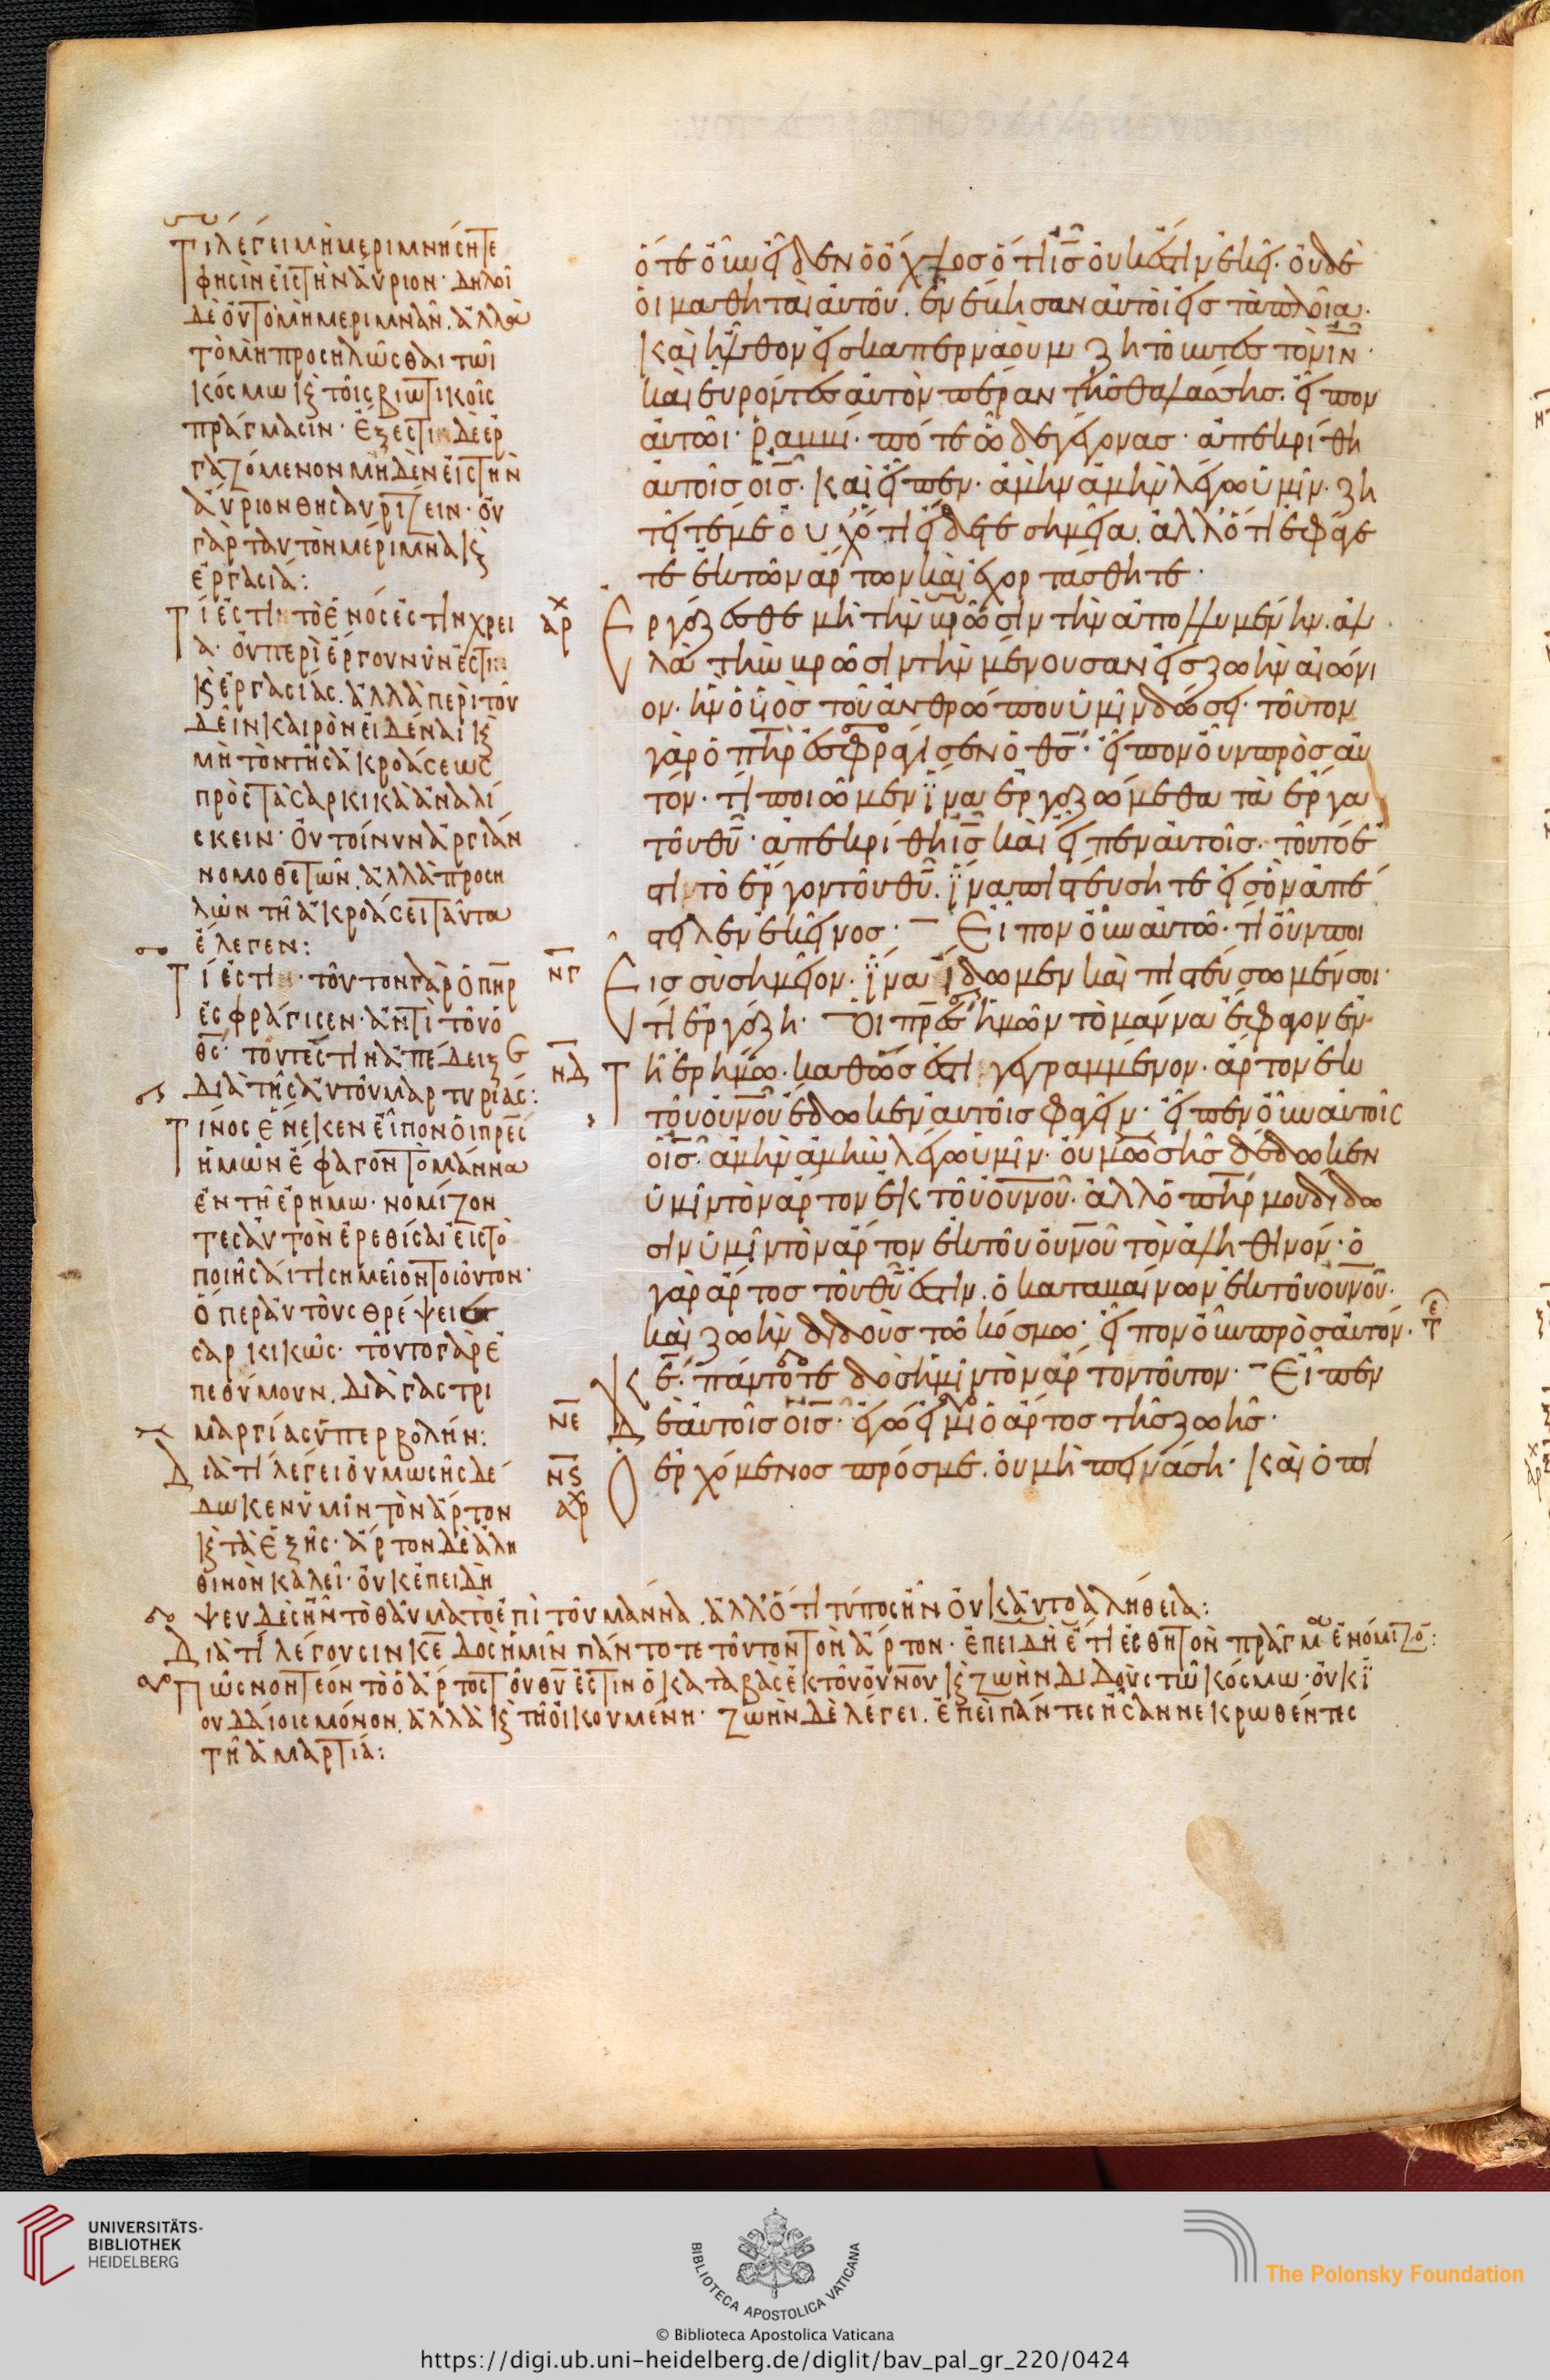 Τί λέγει μὴ μεριμνήσητε
φησὶν εἰς τὴν ἀύριον· δηλοῖ
δὲ ὀυ τὸ μὴ μεριμνᾶν. ἀλλὰ
τὸ μὴ προσηλῶσθαι τῶι
κόσμω κ τοῖς βιωτικοῖς
πράγμασιν· ἔξεστιν δὲ ἐρ
γαζόμενον μηδὲν εἰς τὴν
ἀύριον θησαυρίζειν· ὀυ
γὰρ ταυτὸν μέριμνα κ
ἐργασία:
Τί ἐστιν τὸ ἑνός ἐστιν χρεί
α· ὀυ περὶ ἔργου νῦν ἐστιν
κ ἐργασίας. ἀλλὰ περὶ τοῦ
δεῖν καιρὸν εἰδέναι κ
μὴ τὸν τῆς ἀκροάσεως
πρὸς τὰ σαρκικὰ ἀναλί
σκειν· ὀυ τοίνυν ἀργίαν
νομοθετῶν. ἀλλὰ προση
λῶν τῆ ἀκροάσει ταῦτα
ἔλεγεν:
Τί ἐστιν· τοῦτον γὰρ ὁ πηρ
ἐσφράγισεν· ἀντὶ τοῦ ὁ
θς· τουτέστιν ἀπέδειξε
διὰ τῆς ἀυτοῦ μαρτυρίας:
Τίνος ἕνεκεν εἶπον ὁι πρες
ἡμῶν ἔφαγον τὸ μάννα
ἐν τῆ ἐρήμω· νομίζον
τες ἀυτὸν ἐρεθίσαι εἰς τὸ
ποιῆσαί τι σημεῖον τοιοῦτον·
ὅπερ ἀυτοὺς θρέψει
σαρκικῶς· τοῦτο γὰρ ἐ
πεθύμουν. διὰ γαστρι
μαργίας ὑπερβολήν:
Διὰ τί λέγει ὀυ μωσῆς δέ
δωκεν ὑμῖν τὸν ἄρτον
κ τὰ ἑξῆς· ἄρτον δὲ ἀλη
θινὸν καλεῖ· ὀυκ ἐπειδὴ
ψευδὲς ἦν τὸ θαῦμα τὸ ἐπὶ τοῦ μάννα. ἀλλ' ὅτι τύπος ἦν ὀυκ ἀυτοαλήθεια:
Διὰ τί λέγουσιν κε δὸς ἡμῖν πάντοτε τοῦτον τὸν ἄρτον· ἐπειδὴ ἔτι ἐσθητὸν πρᾶγμα ἐνόμιζο:
Πῶς νοητέον τὸ ὁ ἄρτος τοῦ θυ ἐστιν ὁ καταβὰς ἐκ τοῦ ὀυνου κ ζωὴν διδοὺς τῶ κόσμω· ὀυκ ἰ
ουδαίοις μόνον. ἀλλὰ κ τῆ ὀικουμένη· ζωὴν δὲ λέγει. ἐπεὶ πάντες ἦσαν νεκρωθέντες
τῆ ἁμαρτία:
ὅτε ὀῦν εἶδεν ὁ ὄχλος ὅτι ις ὀυκ ἔστιν ἐκεῖ· ὀυδὲ
ὁι μαθηταὶ ἀυτοῦ. ἐνέβησαν ἀυτοὶ εἰς τὰ πλοῖα·
Καὶ ἦλθον εἰς καπερναοὺμ ζητοῦντες τὸν ιν·
καὶ ἑυρόντες ἀυτὸν πέραν τῆς θαλάσσης. εἶπον
ἀυτῶι· ῥαββί· πότε ὧδε γέγονας· ἀπεκρίθη
ἀυτοῖς ὁ ις. Καὶ εἶπεν· ἀμὴν ἀμὴν λέγω ὑμῖν· ζη
τεῖτέ με ὀυχ ὅτι εἴδετε σημεῖα. ἀλλ' ὅτι ἐφάγε
τε ἐκ τῶν ἄρτων καὶ ἐχορτάσθητε·
αρχ Ἐργάζεσθε μὴ τὴν βρῶσιν τὴν ἀπολλυμένην. ἀλ
λὰ τὴν βρῶσιν τὴν μένουσαν εἰς ζωὴν αἰώνι
ον· ἣν ὁ ὑιὸς τοῦ ἀνθρώπου ὑμῖν δώσει· τοῦτον
γὰρ ὁ πηρ ἐσφράγισεν ὁ θς· εἶπον ὀῦν πρὸς ἀυ
τόν· τί ποιῶμεν ἵνα ἐργαζώμεθα τὰ ἔργα
τοῦ θυ· ἀπεκρίθη ις καὶ εἶπεν ἀυτοῖς· τοῦτό ἐ
στιν τὸ ἔργον τοῦ θυ. ἵνα πιστεύσητε εἰς ὃν ἀπέ
στειλεν ἐκεῖνος· Εἶπον ὀῦν ἀυτῶ· τί ὀῦν ποι
νγ Εῖς σὺ σημεῖον· ἵνα ἴδωμεν καὶ πιστεύσωμέν σοι·
τί ἐργάζη· Ὁι πρες ἡμῶν τὸ μάννα ἔφαγον ἐν
νδ Τῆ ἐρήμω. καθώς ἐστι γεγραμμένον· ἄρτον ἐκ
τοῦ ὀυνοῦ ἔδωκεν ἀυτοῖς φαγεῖν· εἶπεν ὀῦν ἀυτοῖς
ὁ ις· ἀμὴν ἀμὴν λέγω ὑμῖν· ὀυ μωσῆς δέδωκεν
ὑμῖν τὸν ἄρτον ἐκ τοῦ ὀυνοῦ· ἀλλ' ὁ πηρ μου δίδω
σιν ὑμῖν τὸν ἄρτον ἐκ τοῦ ὀυνοῦ τὸν ἀληθινόν· ὁ
γὰρ ἄρτος τοῦ θυ ἐστιν. ὁ καταβαίνων ἐκ τοῦ ὀυνοῦ·
καὶ ζωὴν διδοὺς τῶ κόσμω· εἶπον ὀῦν πρὸς ἀυτόν·
Κε· πάντοτε δὸς ἡμῖν τὸν ἄρτον τοῦτον· Εἶπεν
νε Δὲ ἀυτοῖς ὁ ις· ἐγώ εἰμι ὁ ἄρτος τῆς ζωῆς·
νς αρχ Ὁ ἐρχόμενος πρός με. ὀυ μὴ πεινάση· Καὶ ὁ πι
UNIVERSITÄTS-
BIBLIOTHEK
HEIDELBERG
BIBLIOTECA APOSTOLICA VATICANA
The Polonsky Foundation
© Biblioteca Apostolica Vaticana
https://digi.ub.uni-heidelberg.de/diglit/bav_pal_gr_220/0424